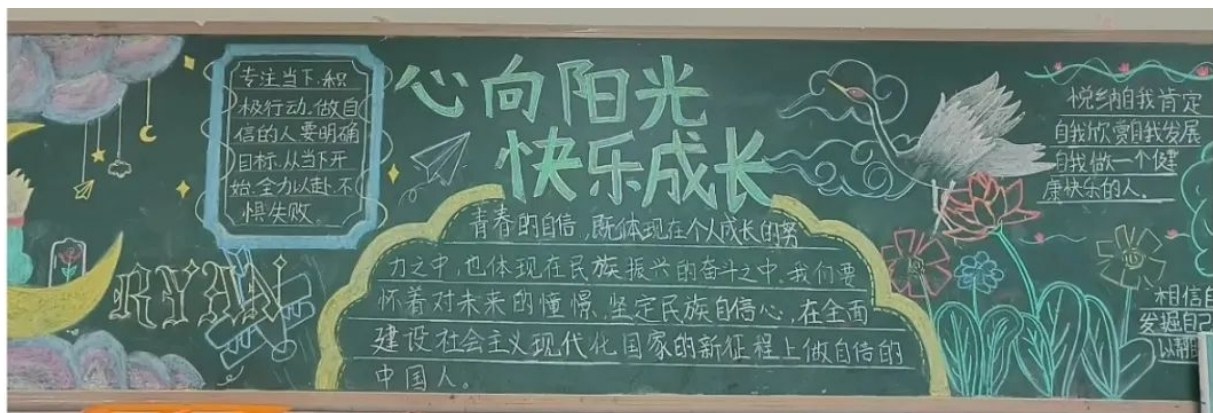 专注当下,积
极行动.做自
信的人要明确
目标.从当下开
始.全力以赴.不
惧失败.
心向阳光
快乐成长
青春的自信,既体现在个人成长的努
力之中,也体现在民族振兴的奋斗之中.我们要
怀着对未来的憧憬,坚定民族自信心,在全面
建设社会主义现代化国家的新征程上做自信的
中国人。
RYAN
悦纳自我肯定
自我欣赏自我发展
自我做一个健
康快乐的人.
相信自
发掘自己